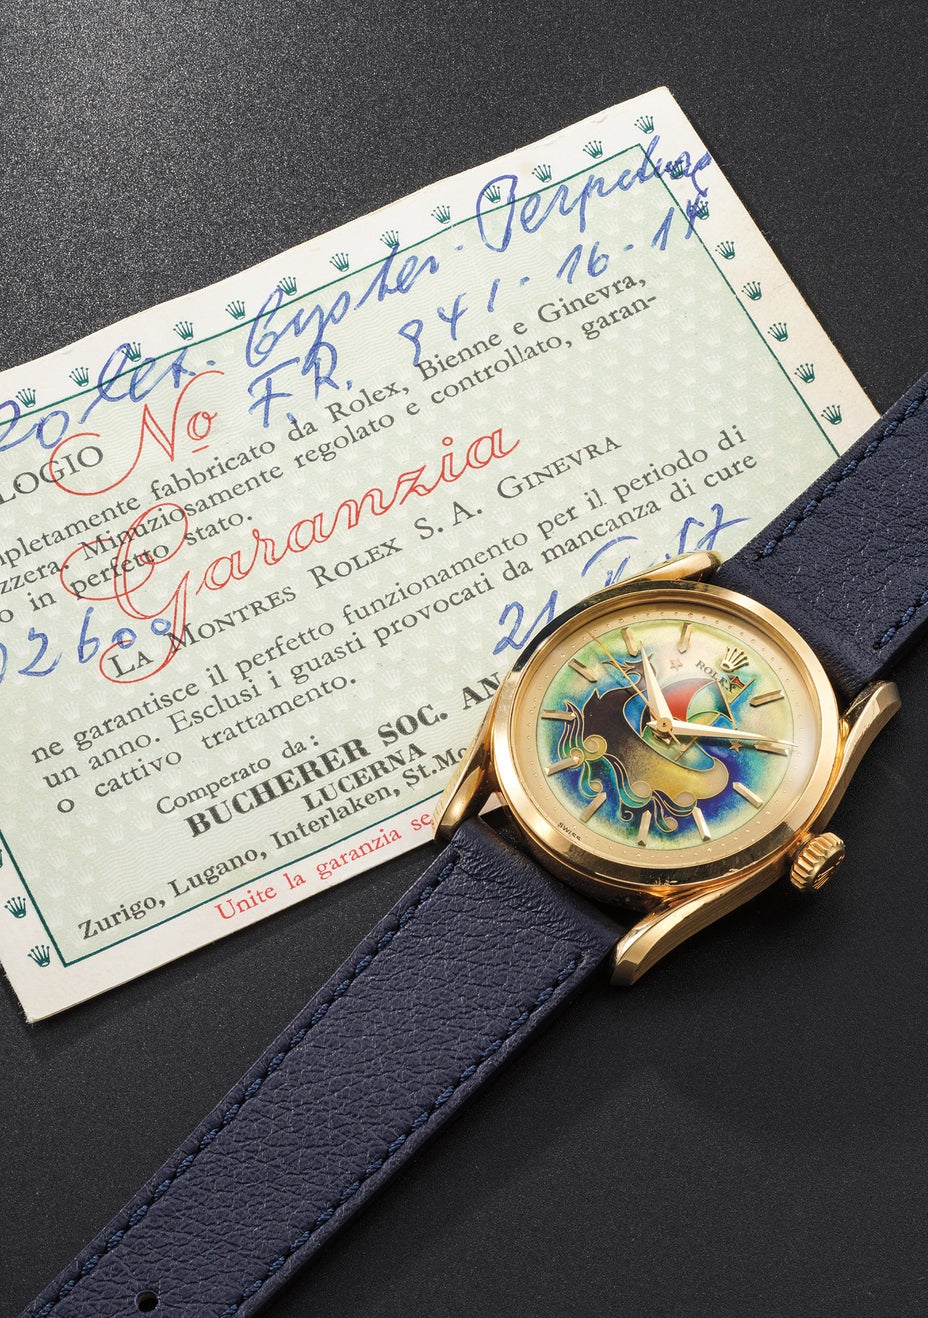 Rolex. Oyster. Perpetual
LOGIO No F.R. 941-16-14
mpletamente fabbricato da Rolex, Bienne e Ginevra,
izzera. Minuziosamente regolato e controllato, garan-
o in perfetto stato.
Garanzia
02600
LA MONTRES ROLEX S. A. GINEVRA
ne garantisce il perfetto funzionamento per il periodo di
un anno. Esclusi i guasti provocati da mancanza di cure
o cattivo trattamento.
21
Comperato da:
BUCHERER SOC. AN
LUCERNA
Zurigo, Lugano, Interlaken, St.Mo
Unite la garanzia se
ROLEX
SWISS